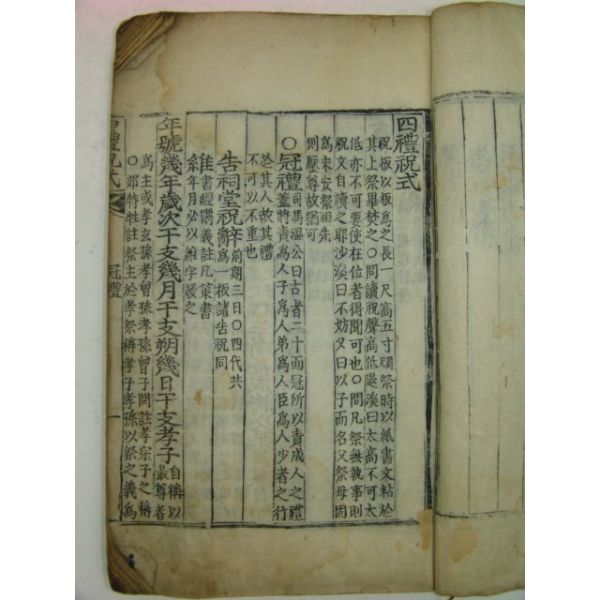 四禮祝式
祝板以板爲之長一尺高五寸祭時以紙書文粘於
其上祭畢焚之○問讀祝聲高低退溪曰太高不可太
低亦不可要使在位者得聞可也○問凡祭無執事則
祝文自讀之耶沙溪曰不妨又曰以子而名父祭母固
爲未安祭祖先
則壓尊故猶可
○冠禮司馬溫公曰古者二十而冠所以責成人之禮
蓋將責爲人子爲人弟爲人臣爲人少者之行
於其人故其禮
不可以不重也
告祠堂祝辭前期三日○四代共
爲一板諸告祝同
維書經講義註凡策書
年月必以維字發之
年號幾年歲次干支幾月干支朔幾日干支孝子自稱以
最尊者
爲主或孝玄孫孝曾孫孝孫曾子問註孝宗子之稱
○郊特牲註祭主於孝祭稱孝子孝孫以祭之義爲
四禮祝式
冠禮
一